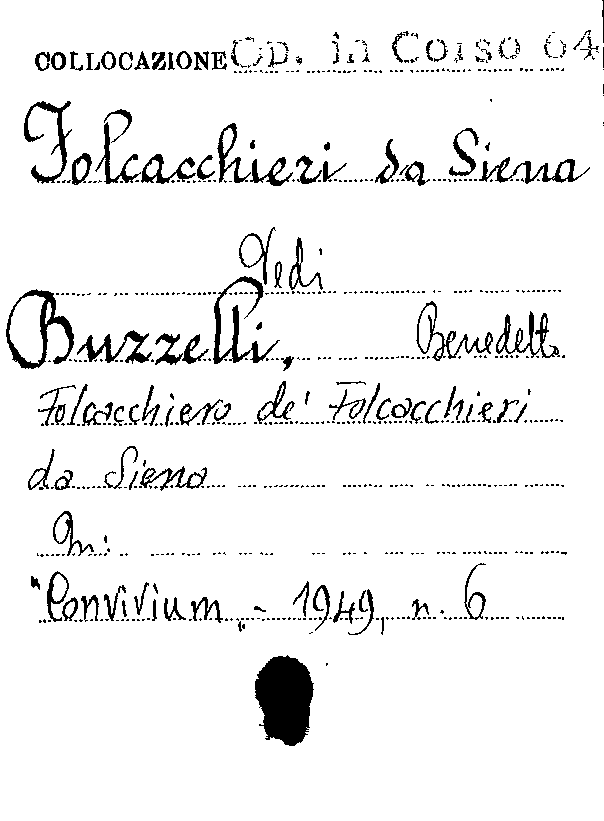 COLLOCAZIONE Op. in Corso 64
Folcacchieri da Siena
Vedi
Buzzelli, Benedetto
Folcacchiero de' Folcacchieri
da Siena
In:
"Convivium„ - 1949, n. 6